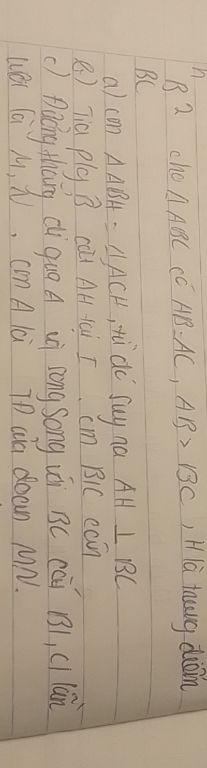 B2 cho ΔABC có AB=AC, AB > BC, H là trung điểm
BC
a) cm ΔABH = ΔACH, từ đó suy ra AH ⊥ BC
b) Tia p/g B cắt AH tại I. cm BIC cân
c) Đường thẳng đi qua A và song song với BC cắt BI, CI lần
lượt tại M, N. cm A là TĐ của đoạn MN.